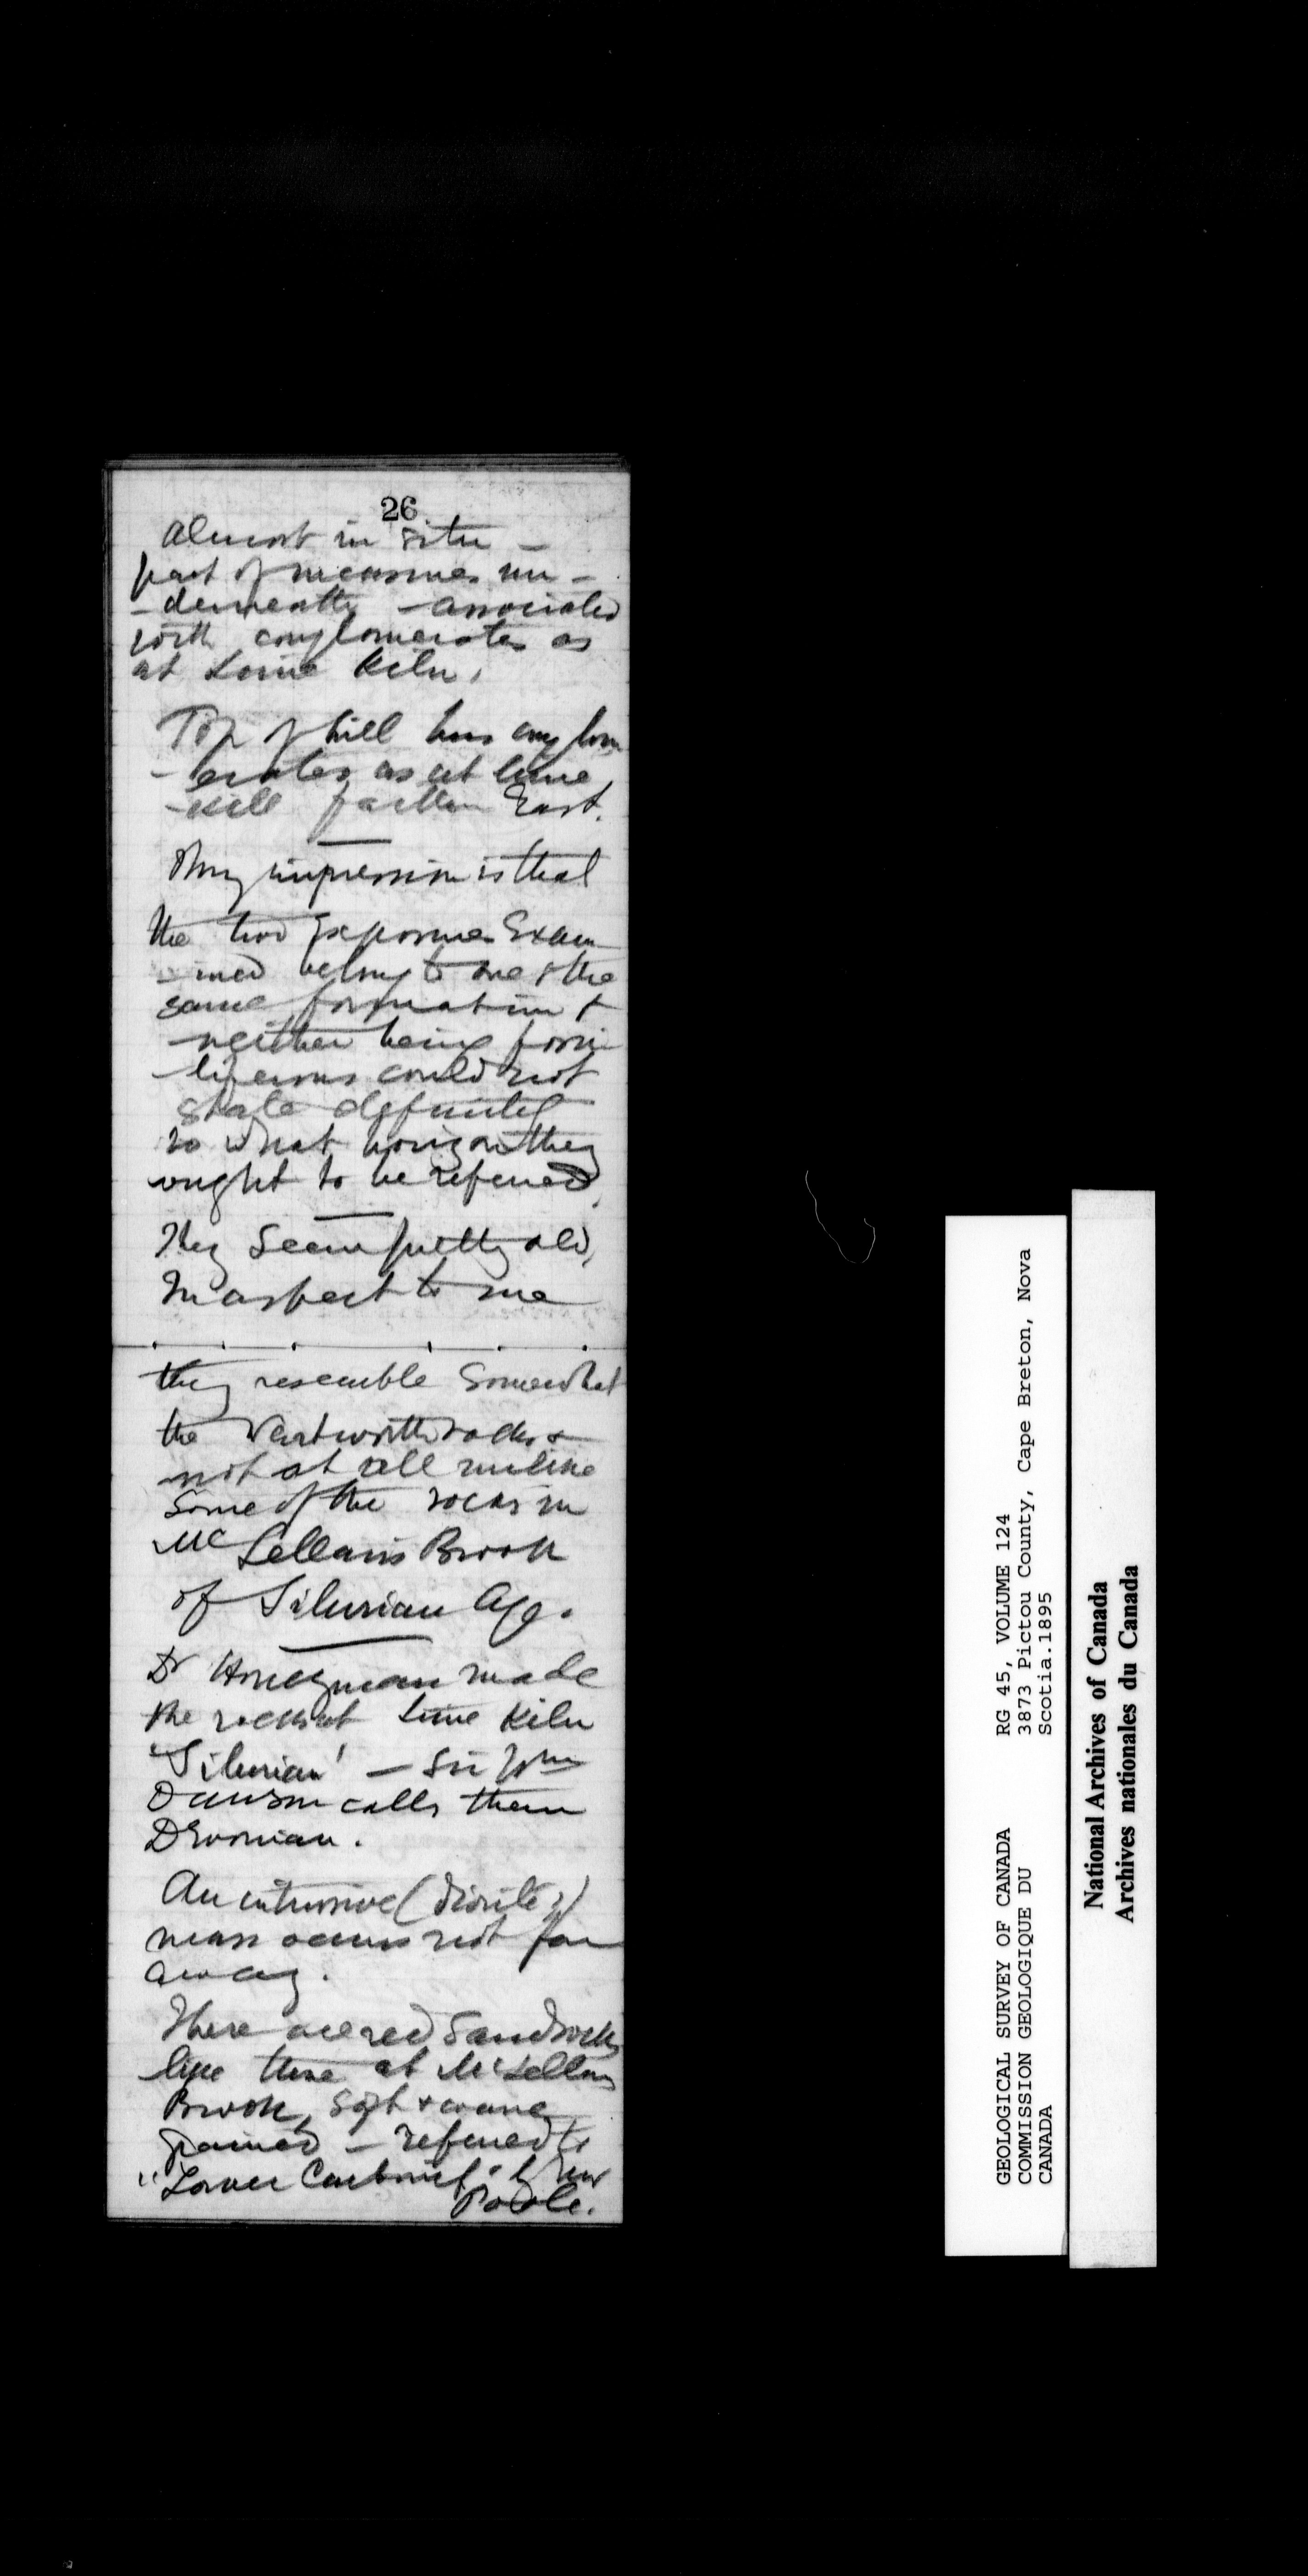 26
Almost in situ —
part of measures un-
-derneath — associated
with conglomerates as
at Lime Kiln.
Top of hill has conglom
-erates as at lime
-kill farther East.
My impression is that
the two Exposures Exam
-ined belong to one & the
same formation &
neither being fossi-
-liferous could not
state definitely
to what horizon they
ought to be referred.
They seem pretty old,
In aspect to me
they resemble somewhat
the Wentworth rocks &
not at all unlike
some of the rocks in
McLellan's Brook
of Silurian Age.
Dr Honeyman made
the rocks at Lime Kiln
'Silurian' — Sir Wm
Dawson calls them
Devonian.
An intrusive (diorite?)
mass occurs not far
away.
There are red Sandrocks
like those at McLellans
Brook, soft & coarse
grained — referred to
"Lower Carbonif." by Mr
Poole.
GEOLOGICAL SURVEY OF CANADA
COMMISSION GEOLOGIQUE DU
CANADA
RG 45, VOLUME 124
3873 Pictou County, Cape Breton, Nova
Scotia.1895
National Archives of Canada
Archives nationales du Canada